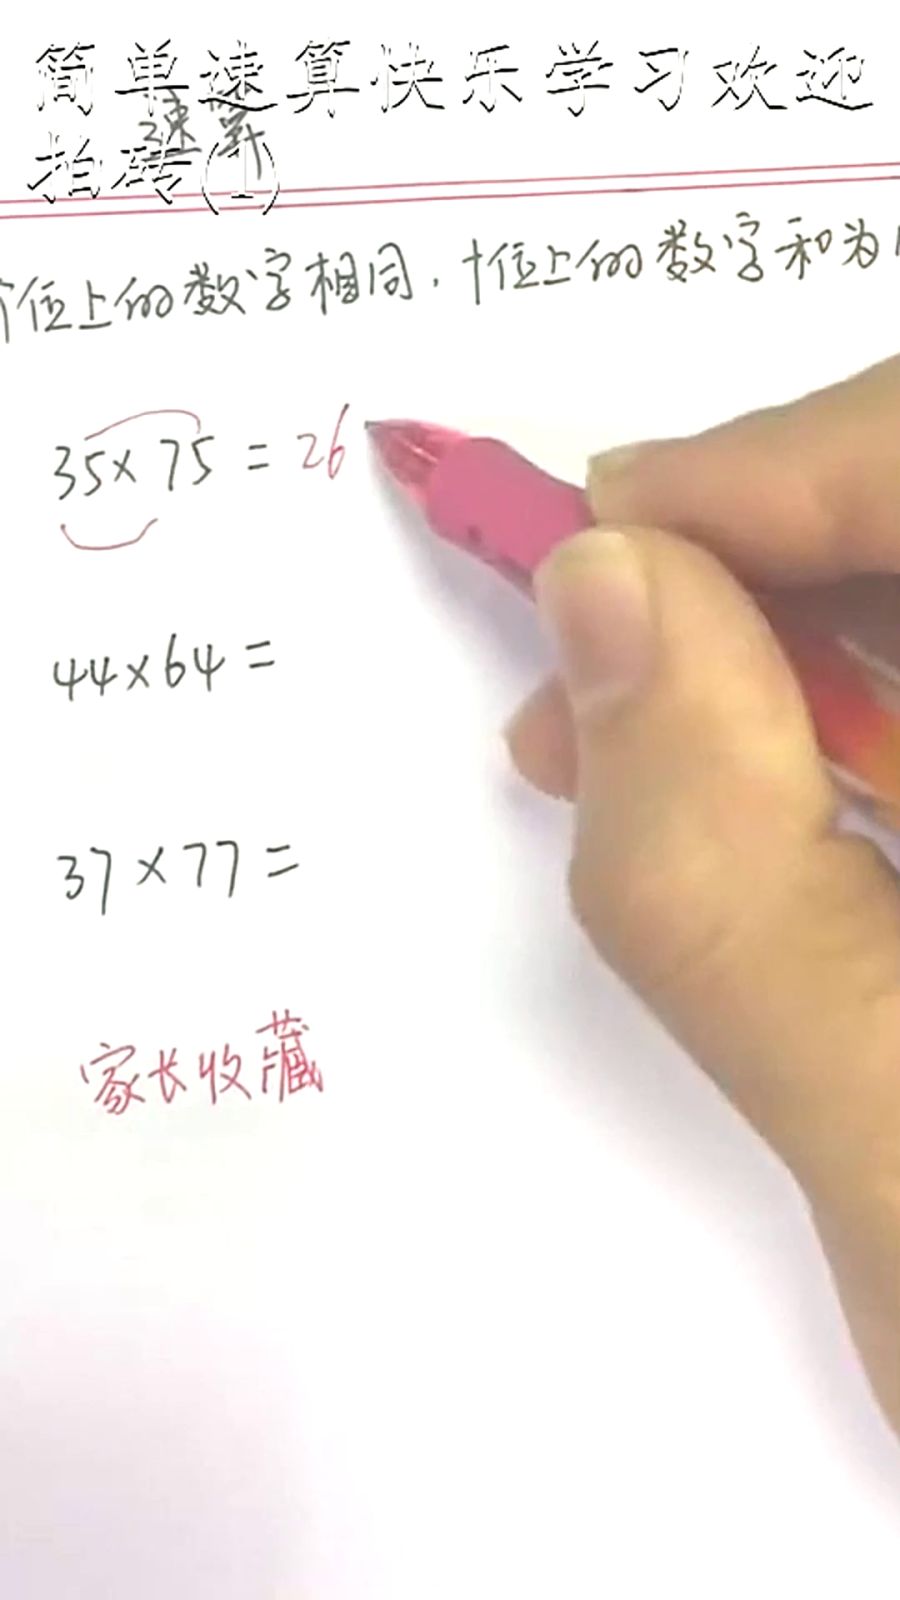 简单速算快乐学习欢迎
拍砖(1)
速算
个位上的数字相同,十位上的数字和为
35×75=26
44×64=
37×77=
家长收藏